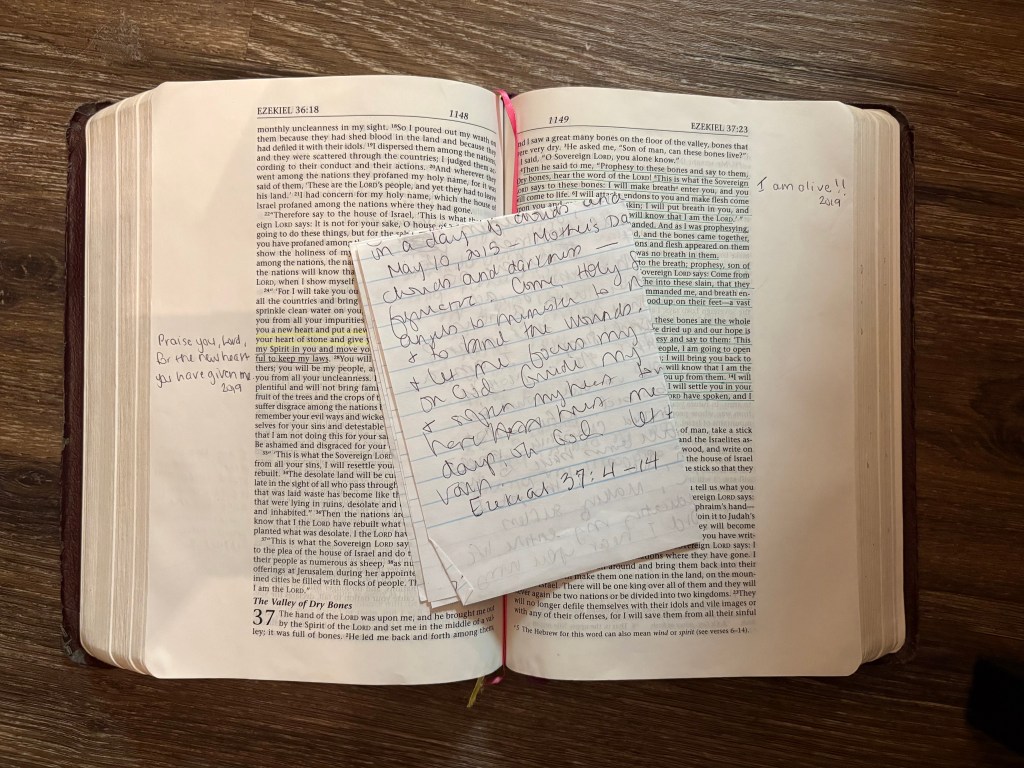 EZEKIEL 36:18
1148
monthly uncleanness in my sight. 18So I poured out my wrath on
them because they had shed blood in the land and because they
had defiled it with their idols. 19I dispersed them among the nations,
and they were scattered through the countries; I judged them ac-
cording to their conduct and their actions. 20And wherever they
went among the nations they profaned my holy name, for it was
said of them, 'These are the LORD's people, and yet they had to leave
his land.' 21I had concern for my holy name, which the house of
Israel profaned among the nations where they had gone.
22"Therefore say to the house of Israel, 'This is what
eign LORD says: It is not for your sake, O house of
going to do these things, but for the
you have profaned among
show the holiness of my
among the nations, the na
the nations will know that
LORD, when I show myself
24" 'For I will take you ou
all the countries and bring
sprinkle clean water on you
you from all your impurities
you a new heart and put a new
your heart of stone and give
my Spirit in you and move yo
ful to keep my laws. 28You will
thers; you will be my people, a
you from all your uncleanness. I
plentiful and will not bring fami
fruit of the trees and the crops of t
suffer disgrace among the nations
remember your evil ways and wicke
selves for your sins and detestable
that I am not doing this for your sa
Be ashamed and disgraced for your
33" 'This is what the Sovereign LORD
from all your sins, I will resettle your
rebuilt. 34The desolate land will be cu
late in the sight of all who pass through
that was laid waste has become like th
that were lying in ruins, desolate and
and inhabited." 36Then the nations ar
know that I the LORD have rebuilt what
planted what was desolate. I the LORD hav
37"This is what the Sovereign LORD say
to the plea of the house of Israel and do t
their people as numerous as sheep, 38as nu
offerings at Jerusalem during her appointe
ined cities be filled with flocks of people. Th
I am the LORD."
The Valley of Dry Bones
37 The hand of the LORD was upon me, and he brought me out
by the Spirit of the LORD and set me in the middle of a val-
ley; it was full of bones. 2He led me back and forth among them,
Praise you, Lord,
for the new heart
you have given me
2019
on a day of clouds and
May 10, 2015 – Mother's Da
clouds and darkness —
Come, Holy
angels to minister to
& to bind the wounds.
& let me focus my
on God. Guide my
&
here
days, oh God. let
vain
Ezekial 37:4-14
1149
EZEKIEL 37:23
nd I saw a great many bones on the floor of the valley, bones that
were very dry. 3He asked me, "Son of man, can these bones live?"
I said, "O Sovereign LORD, you alone know."
4Then he said to me, "Prophesy to these bones and say to them,
'Dry bones, hear the word of the LORD! 5This is what the Sovereign
LORD says to these bones: I will make breath enter you, and you
will come to life. 6I will attach tendons to you and make flesh come
upon you and skin; I will put breath in you, and
will know that I am the LORD.' "
anded. And as I was prophesying,
d, and the bones came together,
ons and flesh appeared on them
was no breath in them.
to the breath; prophesy, son of
overeign LORD says: Come from
he into these slain, that they
mmanded me, and breath en-
ood up on their feet—a vast
these bones are the whole
e dried up and our hope is
esy and say to them: 'This
people, I am going to open
I will bring you back to
will know that I am the
you up from them. 14I will
will settle you in your
ORD have spoken, and I
of man, take a stick
and the Israelites as-
wood, and write on
the house of Israel
e stick so that they
t tell us what you
ereign LORD says:
phraim's hand—
oin it to Judah's
ey will become
you have writ-
ereign LORD says: I
ons where they have gone. I
around and bring them back into their
make them one nation in the land, on the moun-
srael. There will be one king over all of them and they will
never again be two nations or be divided into two kingdoms. 23They
will no longer defile themselves with their idols and vile images or
with any of their offenses, for I will save them from all their sinful
a5 The Hebrew for this word can also mean wind or spirit (see verses 6–14).
I am alive!!
2019